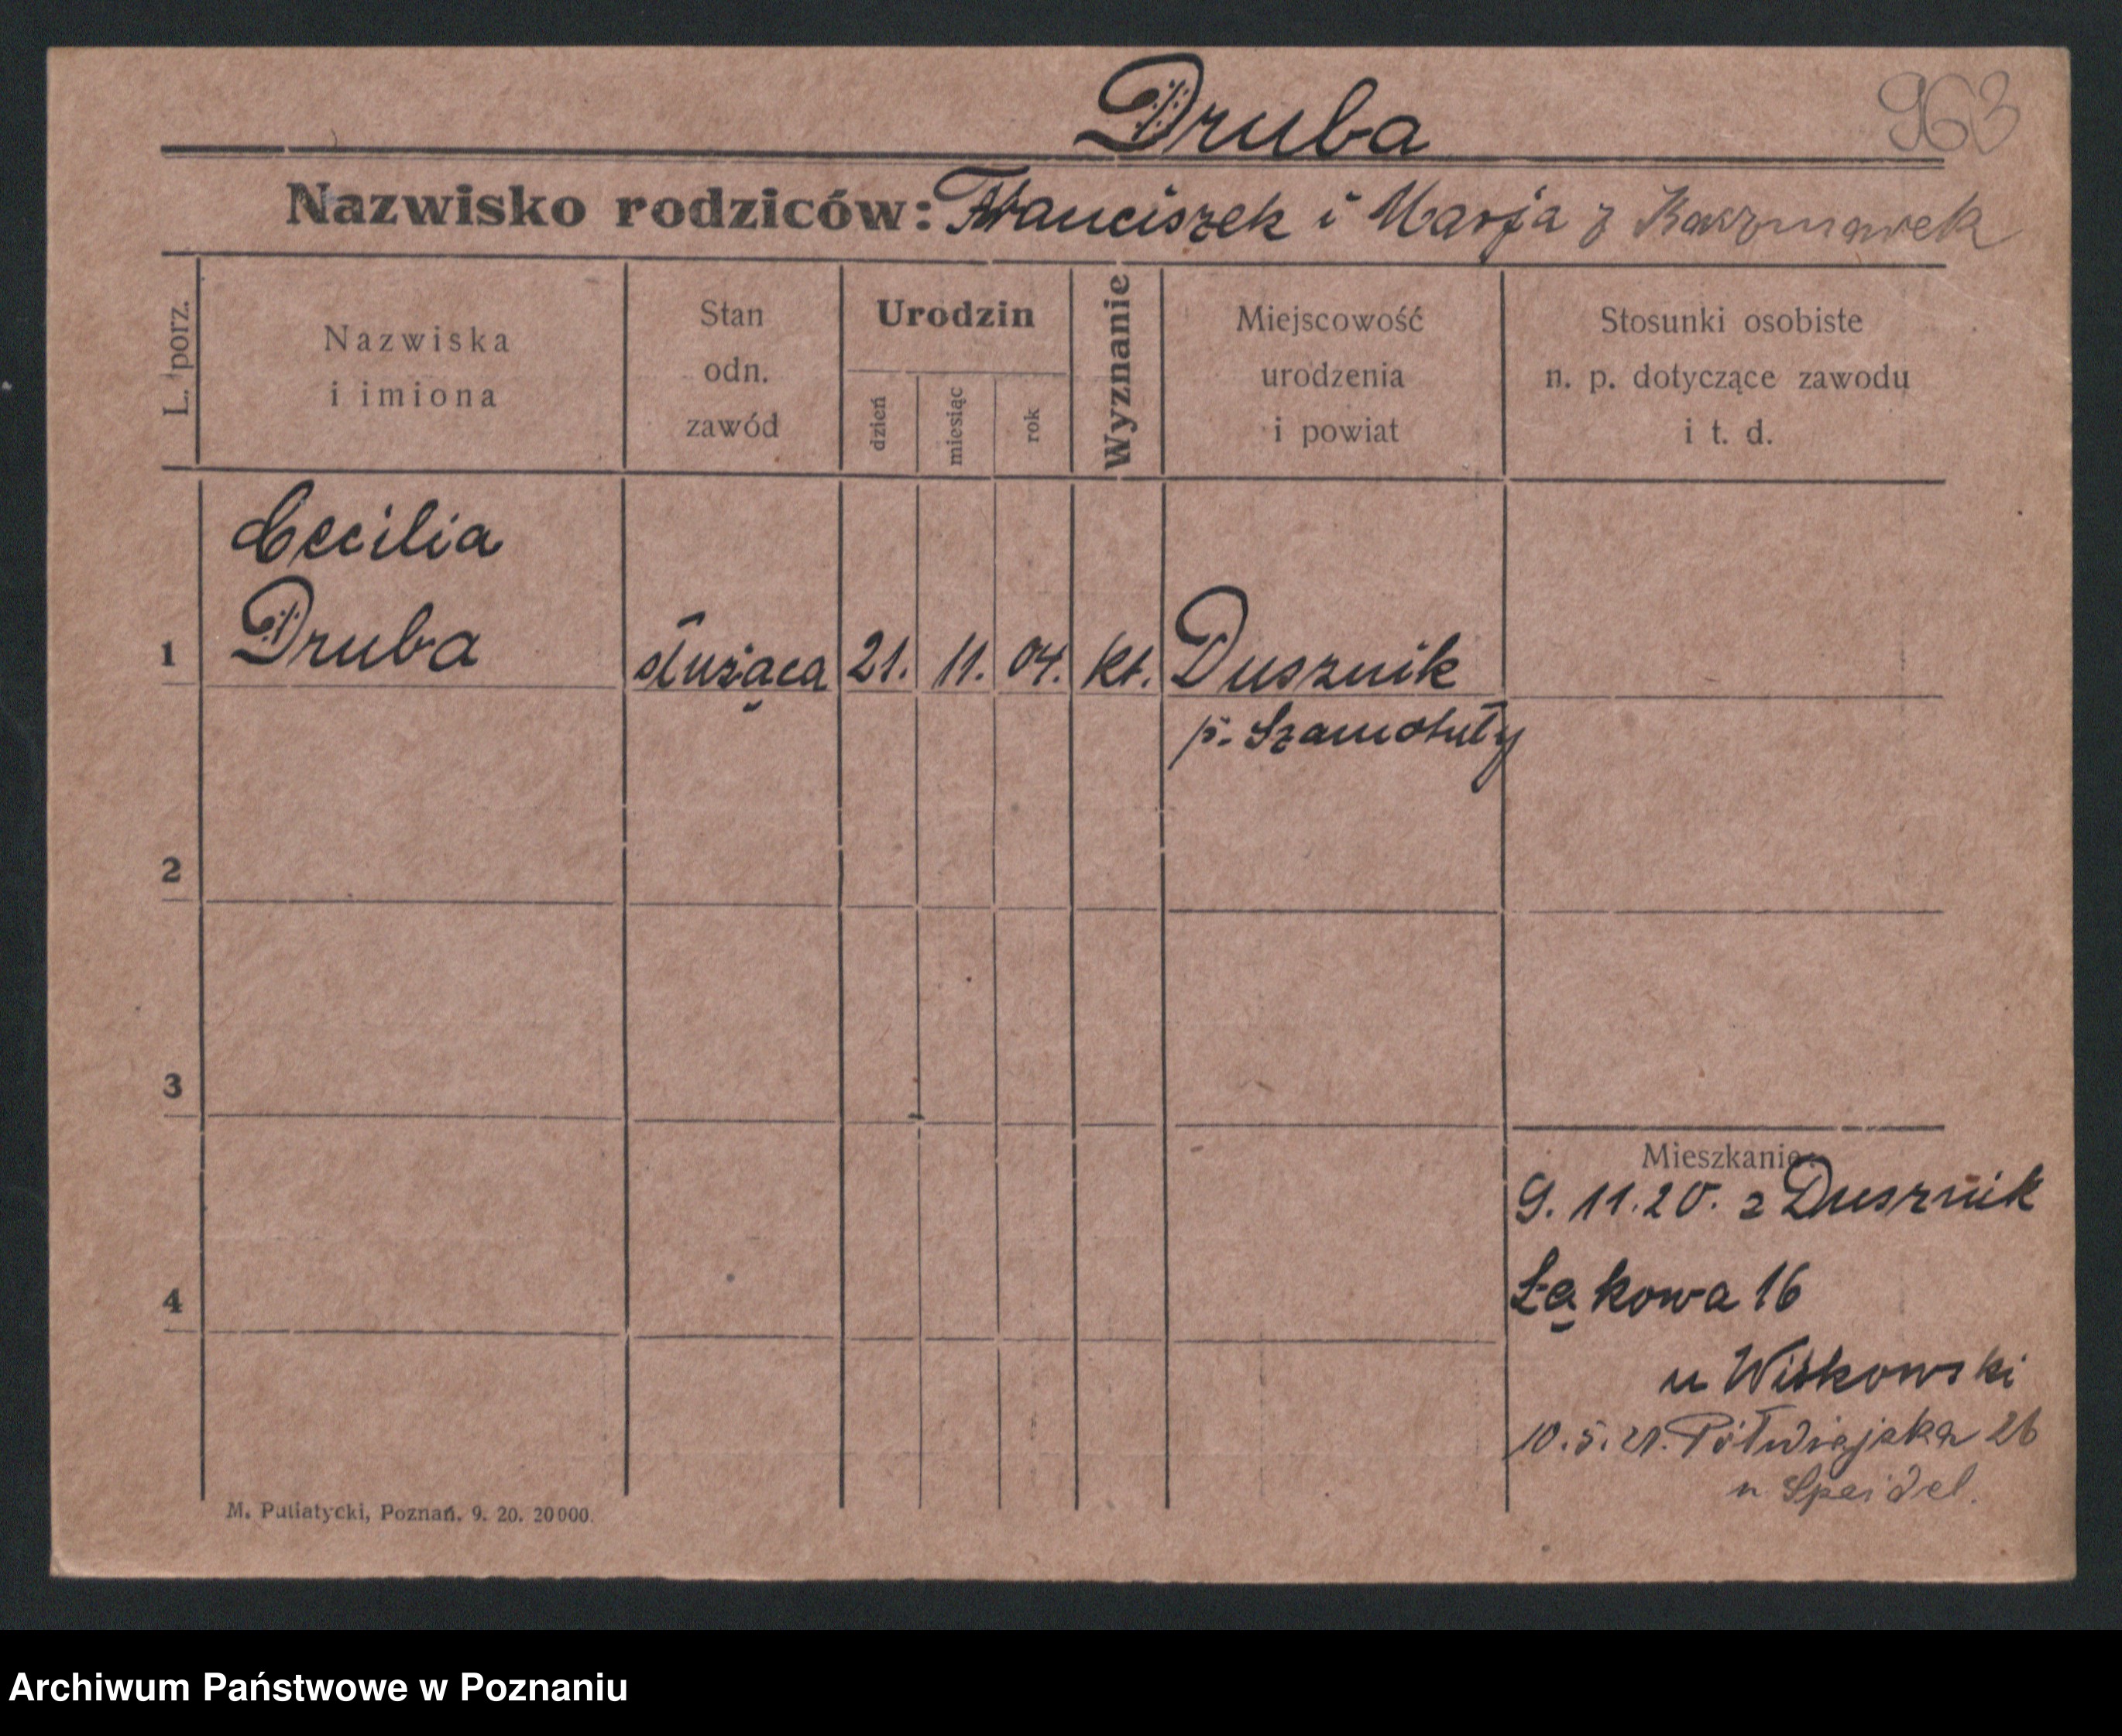 Druba
963
Nazwisko rodziców: Franciszek i Marja z Kaczmarek
L. porz.
Nazwiska
i imiona
Stan
odn.
zawód
Urodzin
dzień
miesiąc
rok
Wyznanie
Miejscowość
urodzenia
i powiat
Stosunki osobiste
n. p. dotyczące zawodu
i t. d.
Cecilia
1 Druba służąca 21. 11. 04. kt. Dusznik
p. Szamotuły
2
3
Mieszkanie:
9. 11. 20. z Dusznik
4 Łąkowa 16
u Witkowski
10. 5. 21. Półwiejska 26
u Speidel.
M. Putiatycki, Poznań. 9. 20. 20000.
Archiwum Państwowe w Poznaniu